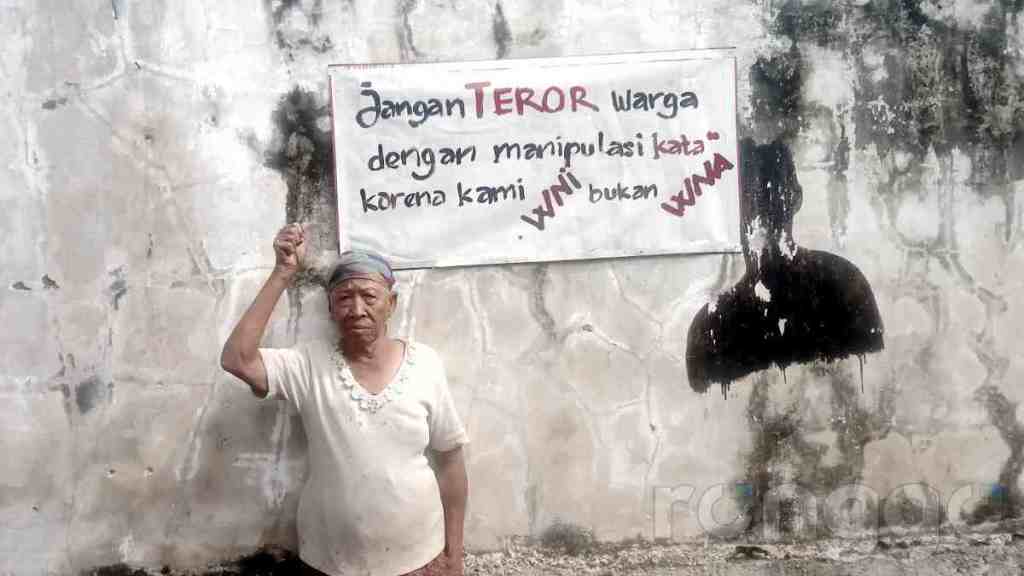 Jangan TEROR warga
dengan manipulasi kata"
karena kami WNI bukan WNA
rongao